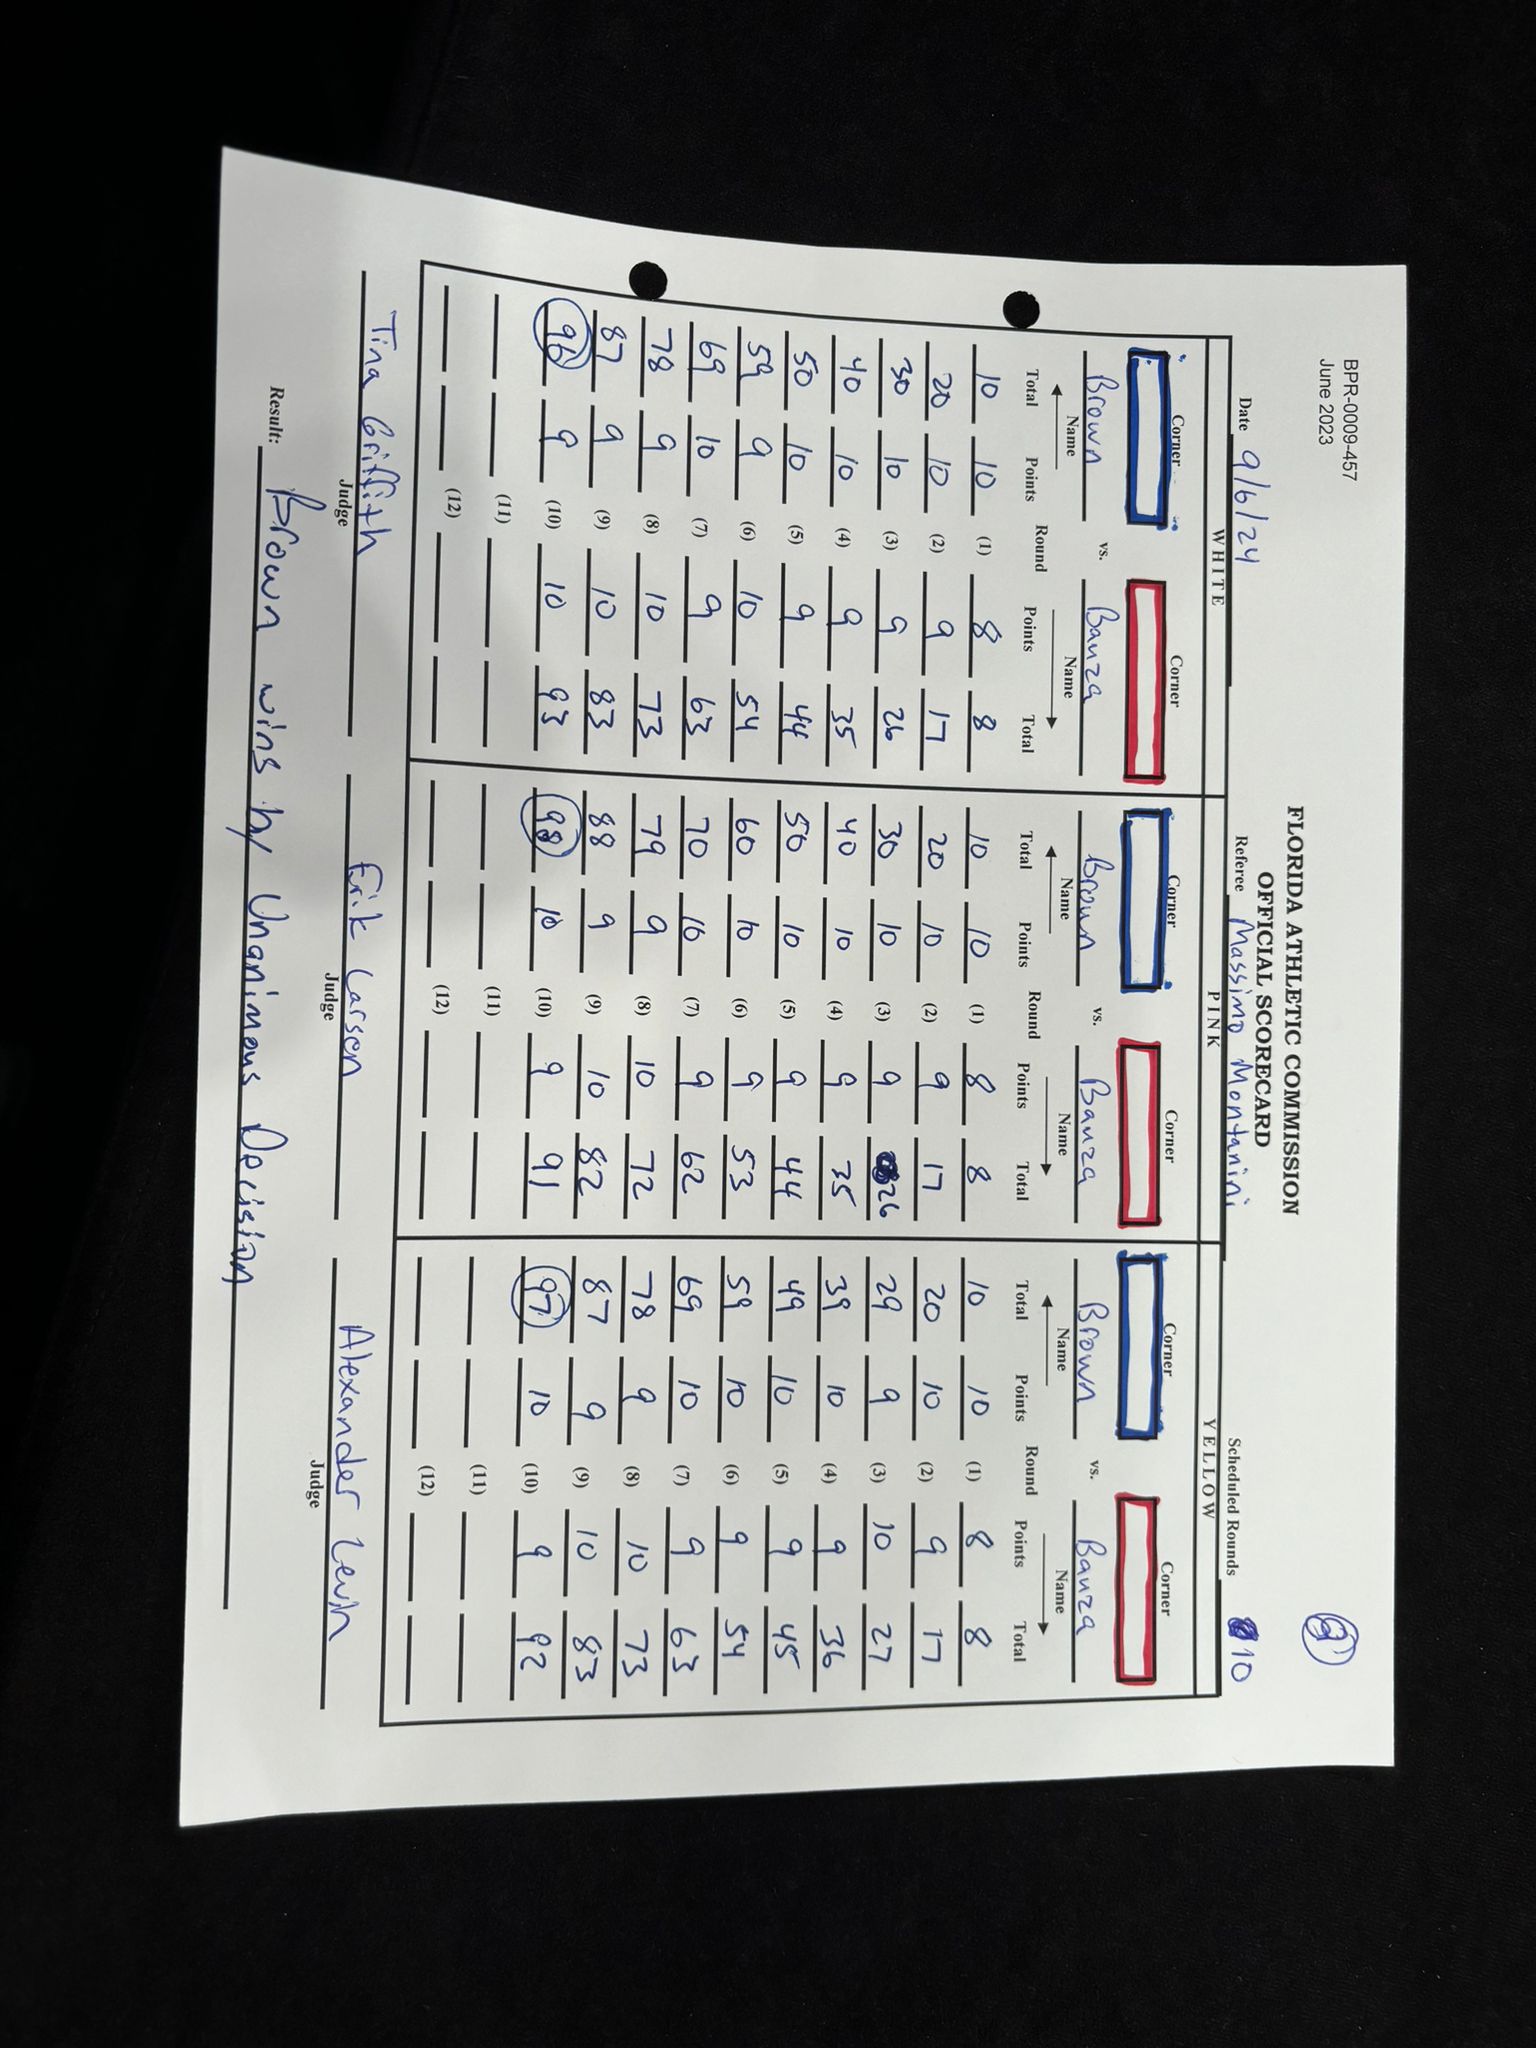 BPR-0009-457
June 2023
②
FLORIDA ATHLETIC COMMISSION
OFFICIAL SCORECARD
Date 9/6/24 Referee Massimo Montanini Scheduled Rounds 10
WHITE PINK YELLOW
Corner Corner Corner Corner Corner Corner
Brown vs. Banza Brown vs. Banza Brown vs. Banza
Name Name Name Name Name Name
Total Points Round Points Total Total Points Round Points Total Total Points Round Points Total
10 10 (1) 8 8 10 10 (1) 8 8 10 10 (1) 8 8
20 10 (2) 9 17 20 10 (2) 9 17 20 10 (2) 9 17
30 10 (3) 9 26 30 10 (3) 9 26 29 9 (3) 10 27
40 10 (4) 9 35 40 10 (4) 9 35 39 10 (4) 9 36
50 10 (5) 9 44 50 10 (5) 9 44 49 10 (5) 9 45
59 9 (6) 10 54 60 10 (6) 9 53 59 10 (6) 9 54
69 10 (7) 9 63 70 10 (7) 9 62 69 10 (7) 9 63
78 9 (8) 10 73 79 9 (8) 10 72 78 9 (8) 10 73
87 9 (9) 10 83 88 9 (9) 10 82 87 9 (9) 10 83
96 9 (10) 10 93 98 10 (10) 9 91 97 10 (10) 9 92
(11) (11) (11)
(12) (12) (12)
Tina Griffith Erik Larson Alexander Levin
Judge Judge Judge
Result: Brown wins by Unanimous Decision